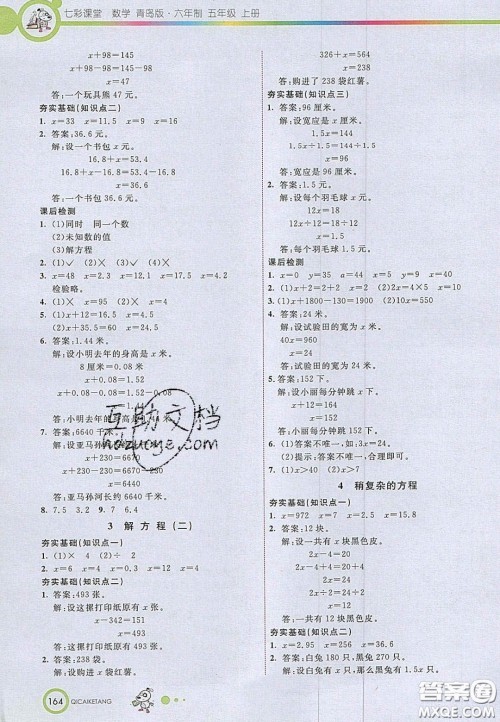 七彩课堂 数学 青岛版·六年制 五年级 上册
x+98-98=145-98
x=47
答:一个玩具熊 47 元。
夯实基础(知识点二)
1. x=33 x=11 x=9 x=16
2. 答案:36.6 元。
解:设一个书包 x 元。
16.8+x=53.4
16.8+x-16.8=53.4-16.8
x=36.6
答:一个书包 36.6 元。
课后检测
1. (1)同时 同一个数
(2)未知数的值
(3)解方程
2. (1)✓ (2)× (3)× (4)✓
3. x=48 x=2.3 x=12 x=17.5 x=4.2
检验略。
5. (1)x+12=16.5 (2)x-4.5=3
(3)x+35.5=60 (4)x-2.4=10
6. 答案:1.44 米。
解:设小明去年的身高是 x 米。
8 厘米=0.08 米
x+0.08=1.52
x+0.08-0.08=1.52-0.08
x=1.44
7. 答案:6640 千米。
x+230=6870
x=6640
答:亚马孙河长约 6640 千米。
8. 7.5 3.2 9. 7 9
3 解 方 程 (二)
夯实基础(知识点一)
1. (1)× 4 (2)÷ 2
2. x=6 x=4 x=24 x=0.4
夯实基础(知识点二)
1. 答案:493 张。
解:设这摞打印纸原有 x 张。
x-163=330
x-163+163=330+163
x=493
答:这摞打印纸原有 493 张。
2. 答案:238 袋。
解:设购进了 x 袋红薯。
326+x=564
x=238
答:购进了 238 袋红薯。
夯实基础(知识点三)
1. 答案:96 厘米。
解:设宽应是 x 厘米。
1.5x=144
1.5x÷1.5=144÷1.5
x=96
答:宽应是 96 厘米。
2. 答案:1.5 元。
解:设每个羽毛球 x 元。
12x=18
12x÷12=18÷12
x=1.5
答:每个羽毛球 1.5 元。
课后检测
1. x=0 x=35 a=44 x=5 y=9 y=40
2. (1)x+2=2+2 (2)x×5=10×5
3. (1)x+1800-130=1900 (2)10x=550
4. 答案:24 米。
解:设试验田的宽为 x 米。
40x=960
x=24
答:试验田的宽为 24 米。
5. 答案:152 下。
解:设小丽每分钟跳 x 下。
x=152
答:小丽每分钟跳 152 下。
6. (1)答案不唯一,如:3x=24。
(2)答案不唯一,合理即可。
7. (1)x>0.7 (2)x>7
4 稍复杂的方程
夯实基础(知识点一)
1. x=972 x=7 x=5 x=8
2. 答案:12 块。
解:设一共有 x 块黑色皮。
2x-4=20
2x-4+4=20+4
2x=24
2x÷2=24÷2
x=12
答:一共有 12 块黑色皮。
夯实基础(知识点二)
互助文档
hdzuoye.com
164
QICAIKETANG
答案圈
MXQE.COM